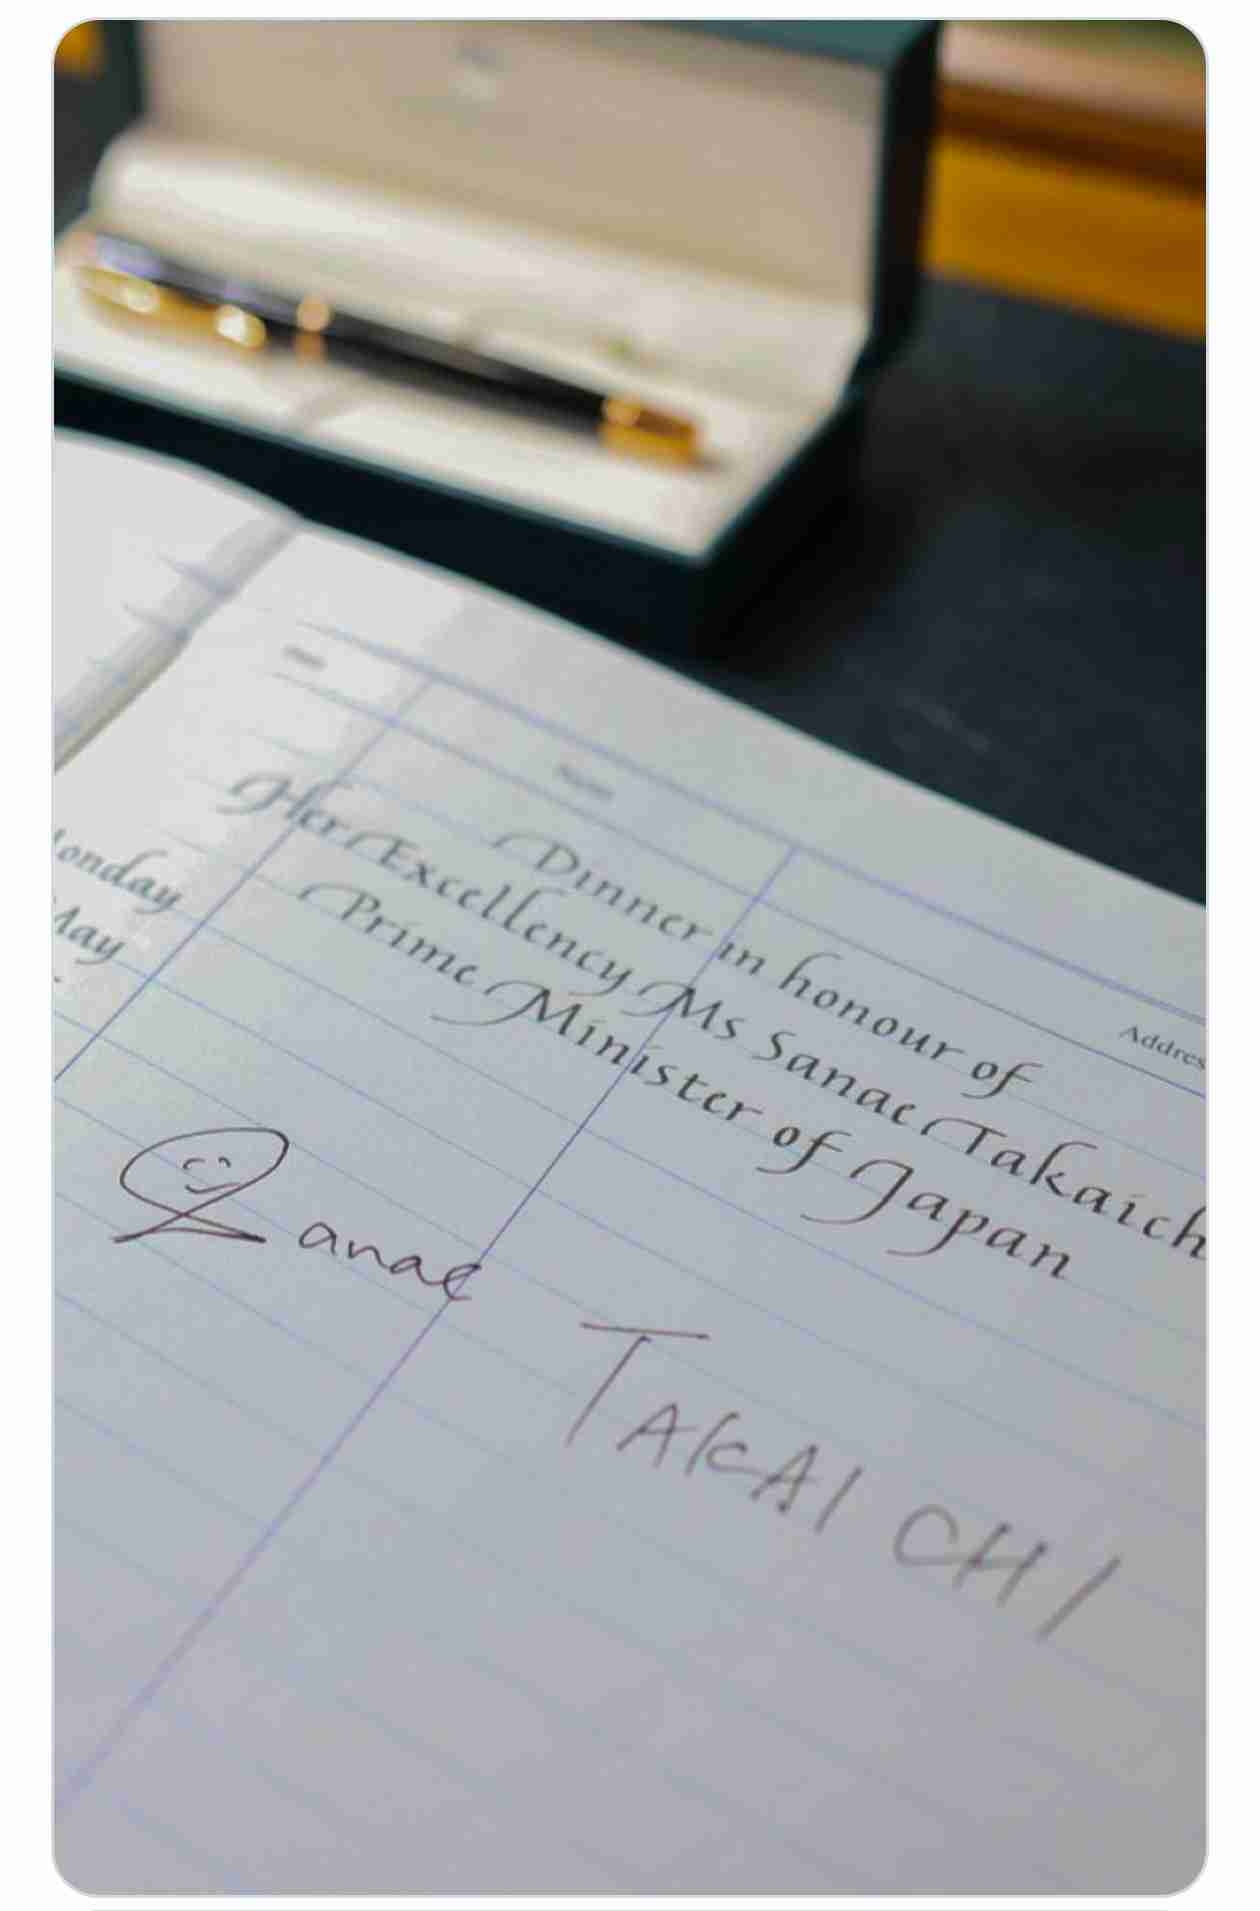 Addres
Dinner in honour of
Her Excellency Ms Sanae Takaich
Prime Minister of Japan
onday
May
Sanae
TAKAICHI